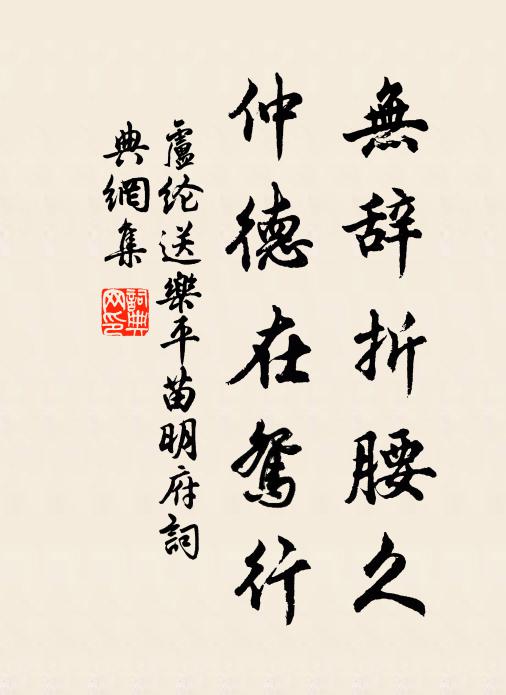 無辞折腰久
仲德在鴛行
盧纶送樂平苗明府詞
典網集
詞典网印